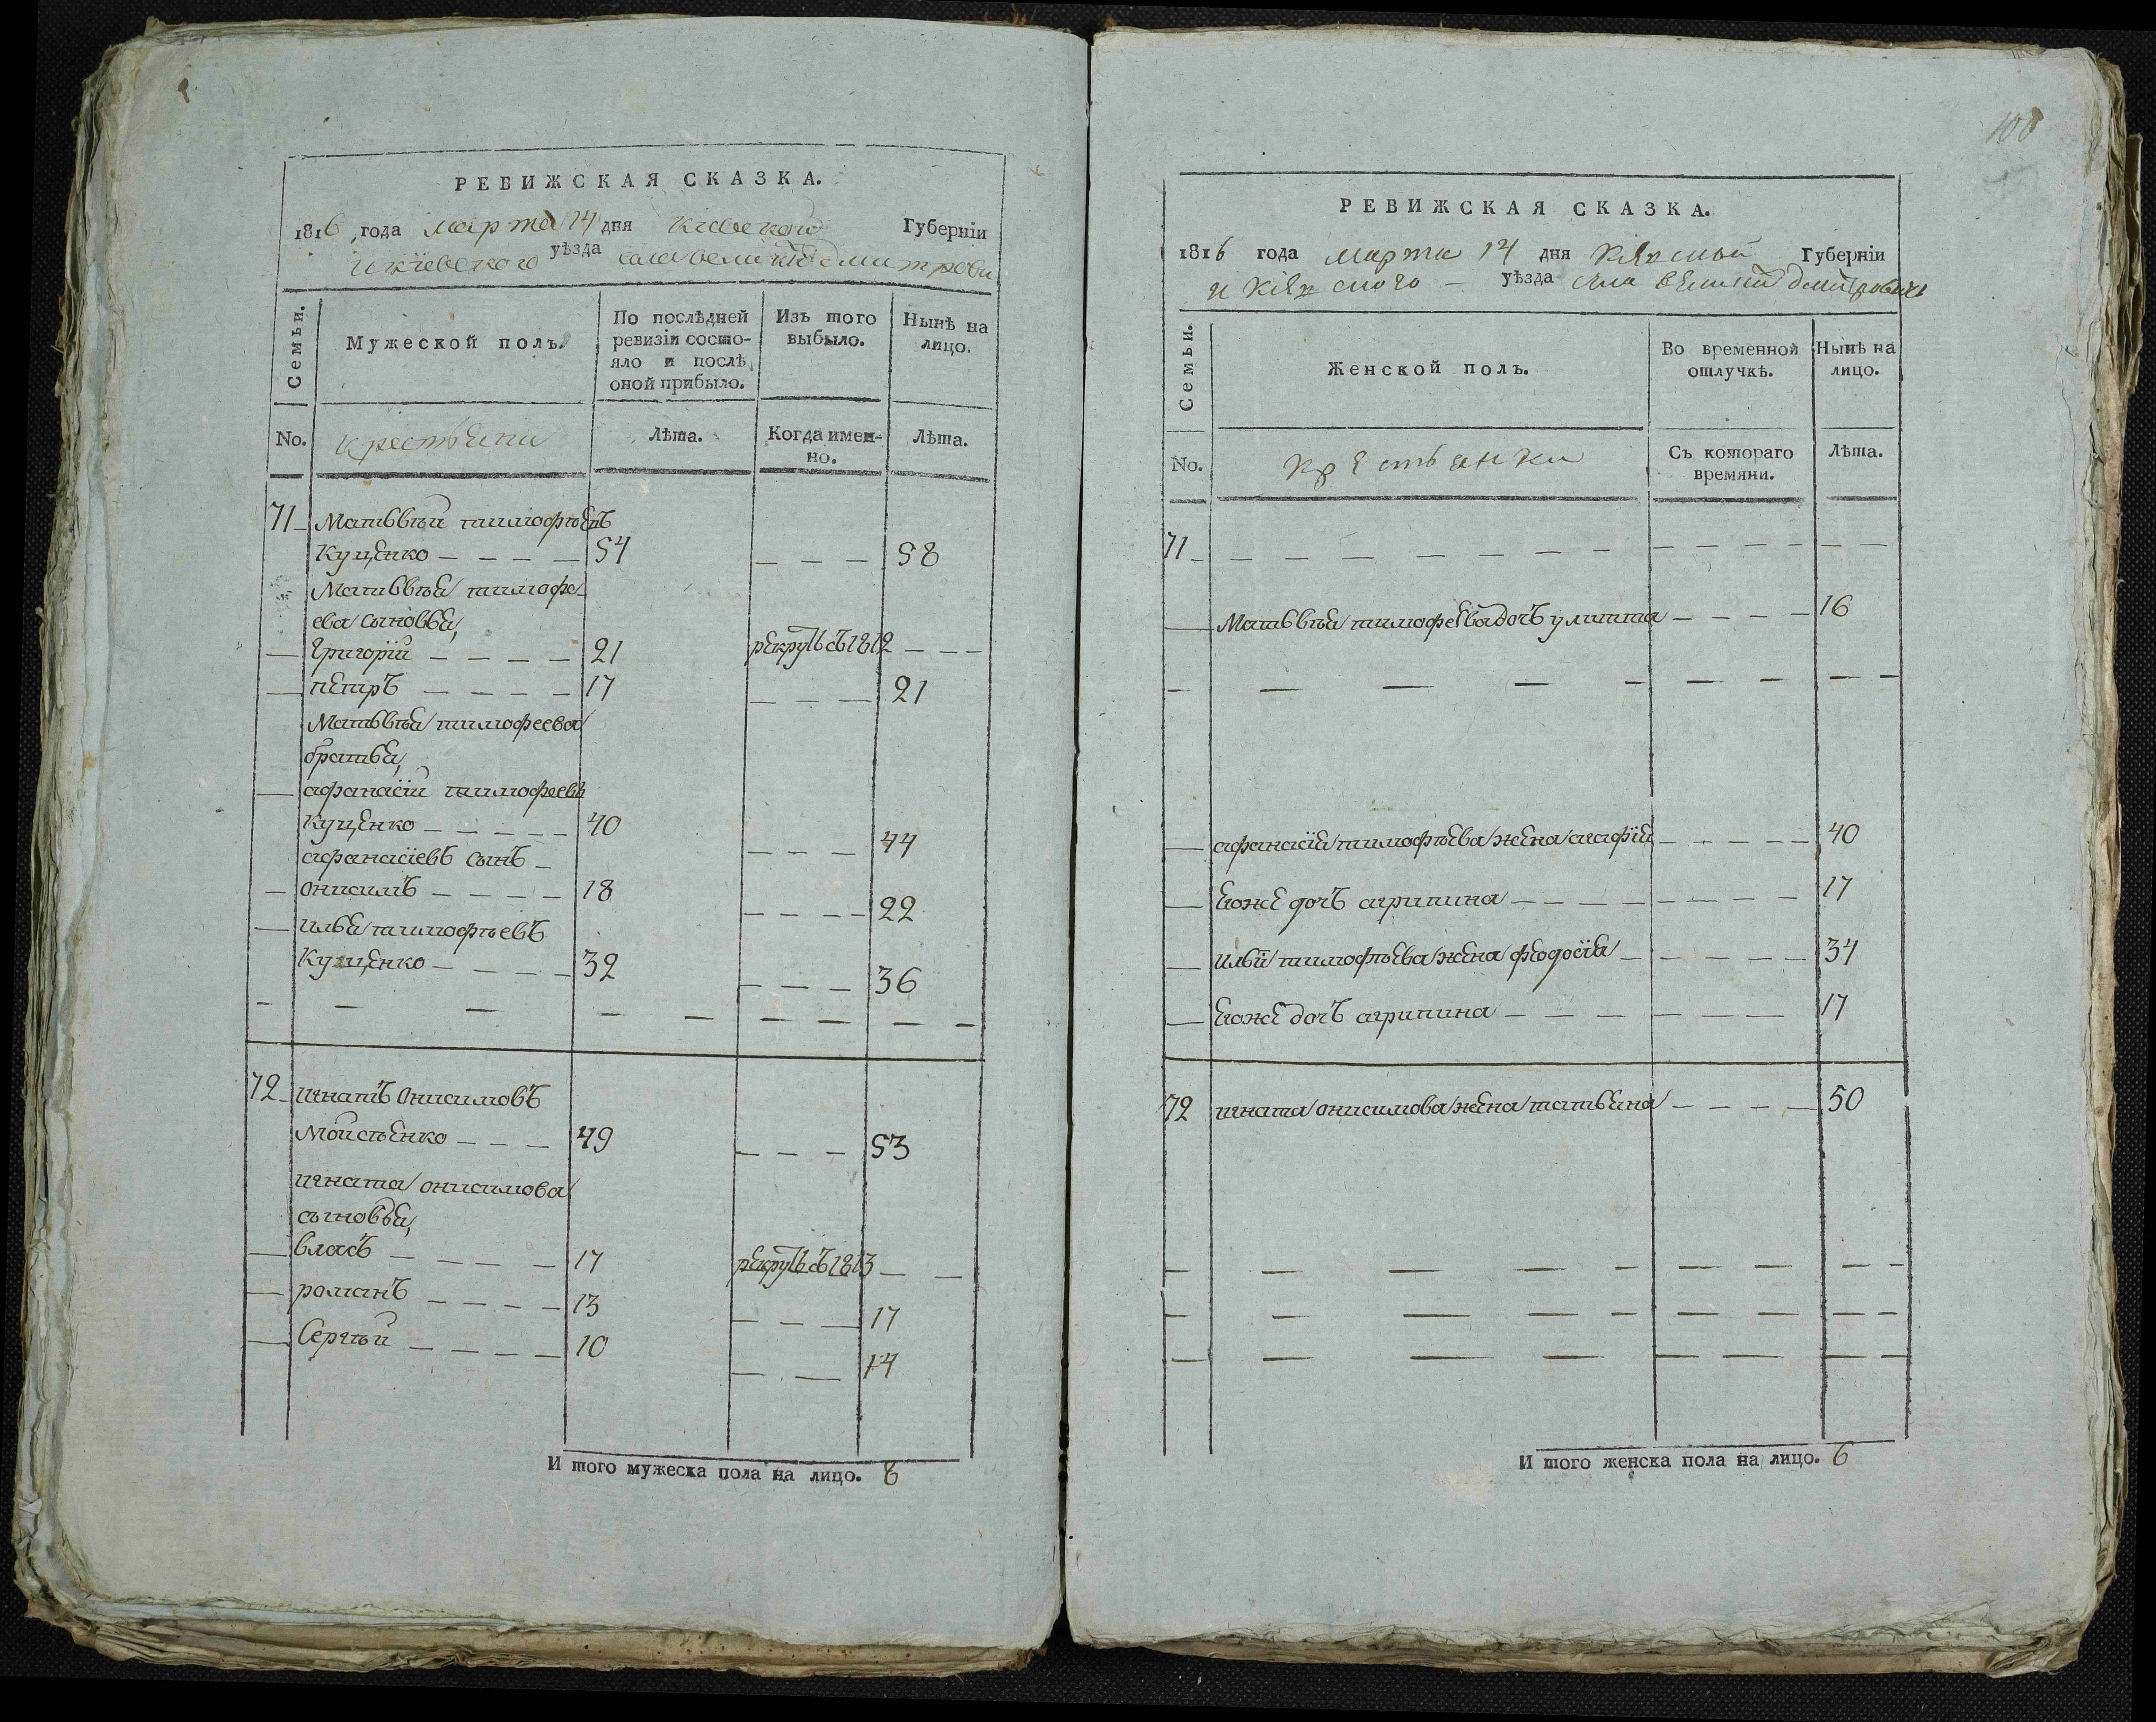 РЕВИЖСКАЯ СКАЗКА.
1816 года марта 14 дня Киевской Губерніи
и Кіевского уѣзда села великой дмитрови
Семьи.
Мужеской полъ.
По послѣдней ревизіи состояло и послѣ оной прибыло.
Изъ того выбыло.
Нынѣ на лицо.
No. крестьяни Лѣта. Когда именно. Лѣта.
71 Матьвѣй тимофѣевъ
Куценко 54 58
Матьвѣя тимофе
ева сыновья,
Григорій 21 рекрутъ съ 1812
петръ 17 21
Матьвѣя тимофеева
братья,
афанасій тимофеевъ
Куценко 40 44
афанасіевъ сынъ
онисимъ 18 22
илья тимофѣевъ
Куценко 32 36
72 игнатъ Онисимовъ
Моисѣенко 49 53
игната онисимова
сыновья,
власъ 17 рекрутъ съ 1813
романъ 13 17
Сергѣй 10 14
И того мужеска пола на лицо. 8
100
РЕВИЖСКАЯ СКАЗКА.
1816 года марта 14 дня Губерніи
и уѣзда села великой дмитровичъ
Семьи.
Женской полъ.
Во временной отлучкѣ.
Нынѣ на лицо.
No. крестьянки Съ котораго времяни. Лѣта.
71
Матьвѣя тимофеева дочъ улитта 16
афанасія тимофѣева жена агафія 40
Егоже дочъ агрипина 17
ильи тимофѣева жена феодосія 34
Егоже дочъ агрипина 17
72 игната онисимова жена татьяна 50
И того женска пола на лицо. 6